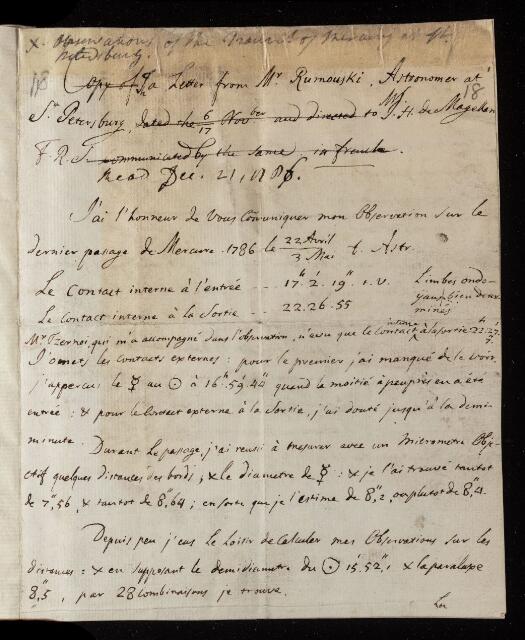 x. Observations of the Transit of Mercury at St
Petersburg.
18
Copy of a Letter from Mr Rumouski, Astronomer at
18
St. Petersburg, dated the 6/17 Novber and directed to Mr J. H. de Magellan
F. R. S. communicated by the same in french.
Read Dec. 21, 1786.
J'ai l'honneur de Vous communiquer mon Observation sur le
dernier passage de Mercure 1786 le 22 Avril / 3 Mai t. Astr.
Le Contact interne à l'entrée -- 17h 2' 19" t. v. Limbes ondo-
yans, bien deter
Le Contact interne à la Sortie -- 22. 26. 55 minés
Mr Tzernoi, qui m'a accompagné dans l'observation, n'a vu que le Contact interne à la sortie 22h 27'
J'omets les contacts externes: pour le premier j'ai manqué de le voir
j'apperçus le ☿ au ☉ à 16h 59' 44" quand la moitié à peu près en a été
entrée: & pour le Contact externe à la Sortie, j'ai douté jusqu'à la demi-
minute. Durant le passage, j'ai reussi à mesurer avec un Micrometre Obje-
ctif quelques distances des bords, & le diametre de ☿: & je l'ai trouvé tantot
de 7",56, & tantot de 8",64; ensorte que je l'estime de 8",2, ou plutot de 8",4.
Depuis peu j'eus le Loisir de Calculer mes Observations sur les
distances: & en supposant le demidiametre du ☉ 15'.52",1 & la paralaxe
8",5, par 28 Combinaisons je trouve.